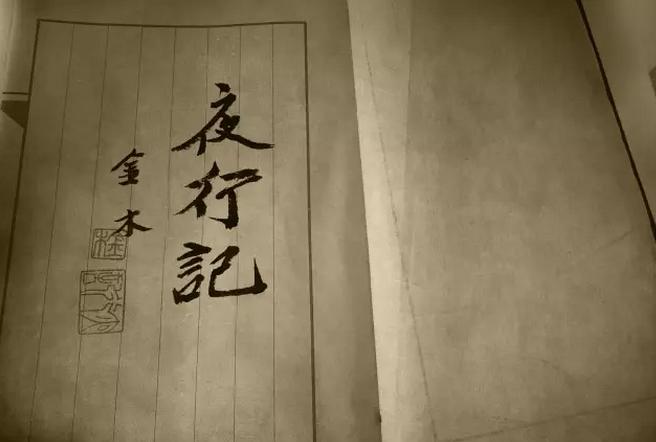 夜行記
金木